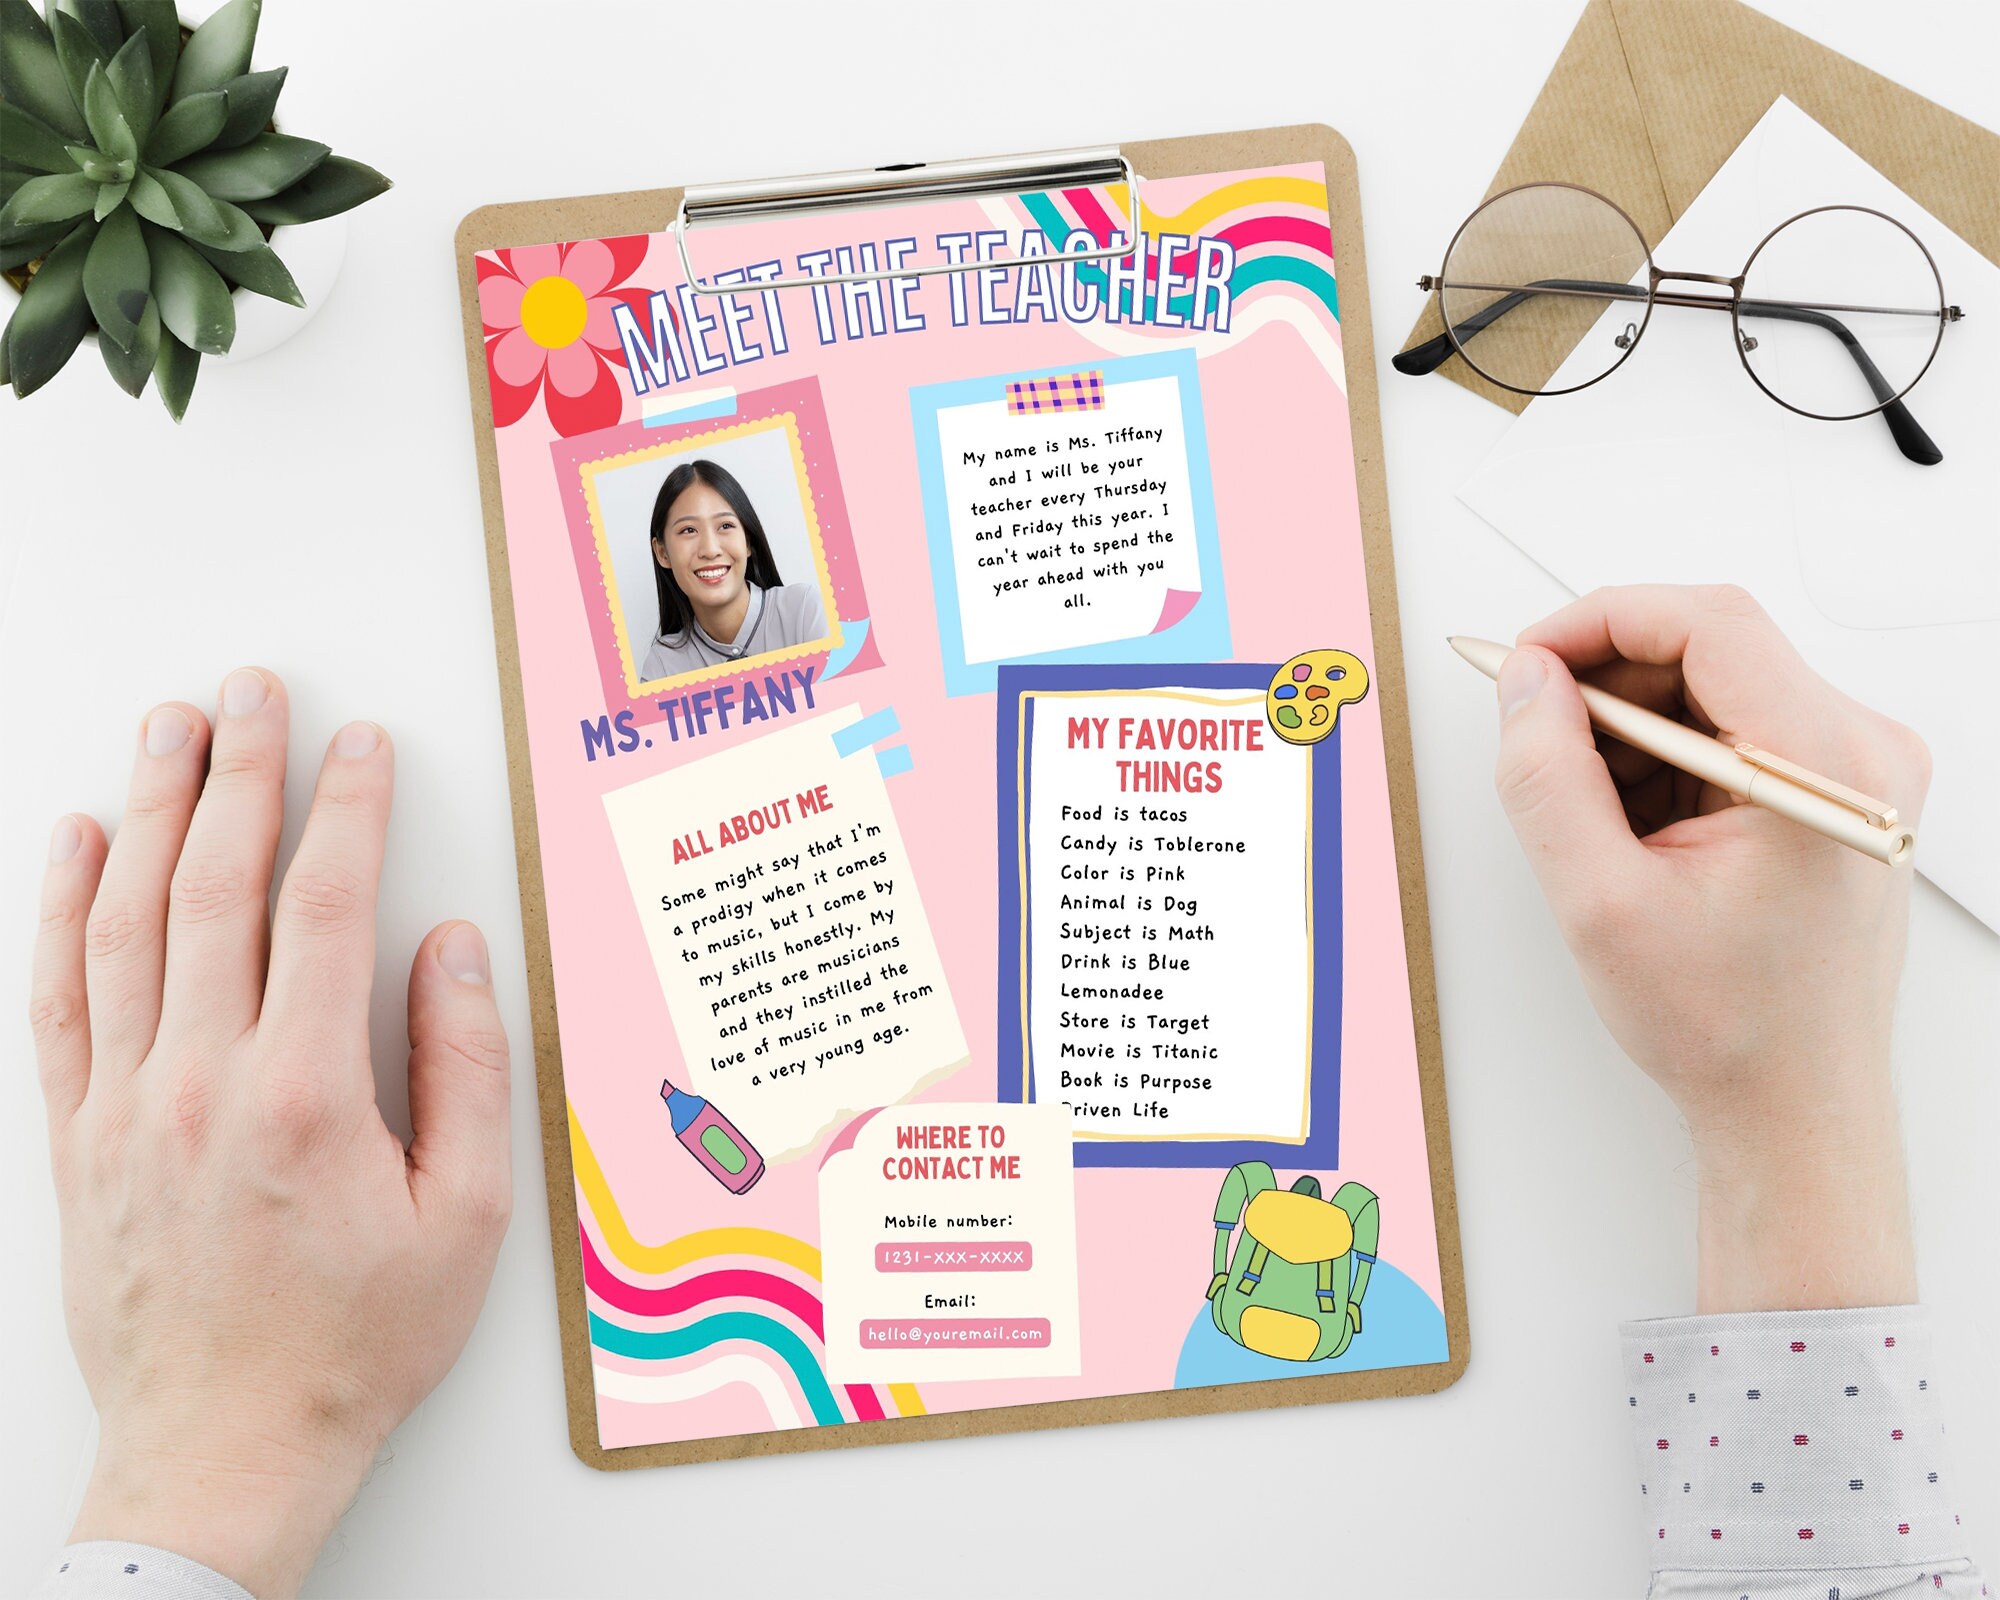 MEET THE TEACHER
My name is Ms. Tiffany
and I will be your
teacher every Thursday
and Friday this year. I
can't wait to spend the
year ahead with you
all.
MS. TIFFANY
ALL ABOUT ME
Some might say that I'm
a prodigy when it comes
to music, but I come by
my skills honestly. My
parents are musicians
and they instilled the
love of music in me from
a very young age.
MY FAVORITE
THINGS
Food is tacos
Candy is Toblerone
Color is Pink
Animal is Dog
Subject is Math
Drink is Blue
Lemonadee
Store is Target
Movie is Titanic
Book is Purpose
Driven Life
WHERE TO
CONTACT ME
Mobile number:
1231-xxx-xxxx
Email:
hello@youremail.com